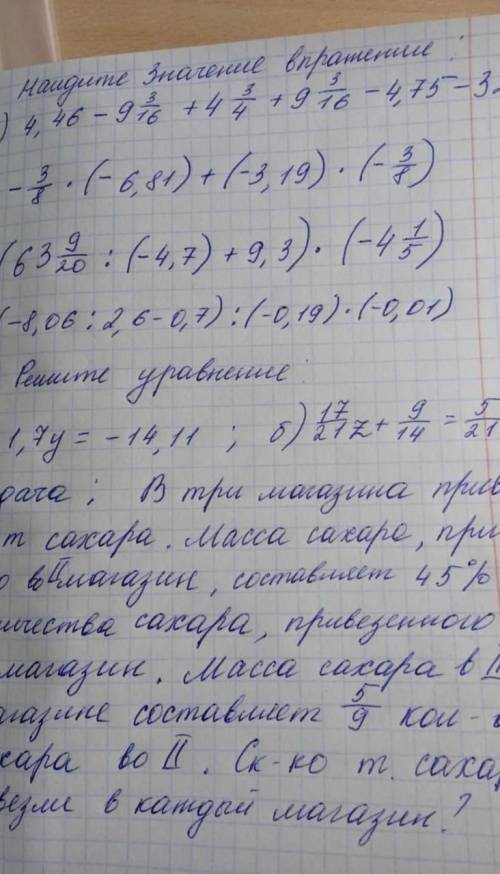 Найдите значение впражение:
) 4,46 - 9 3/16 + 4 3/4 + 9 3/16 - 4,75 - 32
- 3/8 · (-6,81) + (-3,19) · (- 3/8)
(63 9/20 : (-4,7) + 9,3) · (-4 1/5)
(-8,06 : 2,6 - 0,7) : (-0,19) · (-0,01)
Решите уравнение:
1,7y = -14,11 ; б) 17/21 z + 9/14 = 5/21
дача; В три магазина прив
т сахара. Масса сахара, при
о во II магазин, составляет 45%
личества сахара, привезенного
магазин. Масса сахара в I
агазине составляет 5/9 кол-
хара во II. Ск-ко т. сахар
везли в каждый магазин?